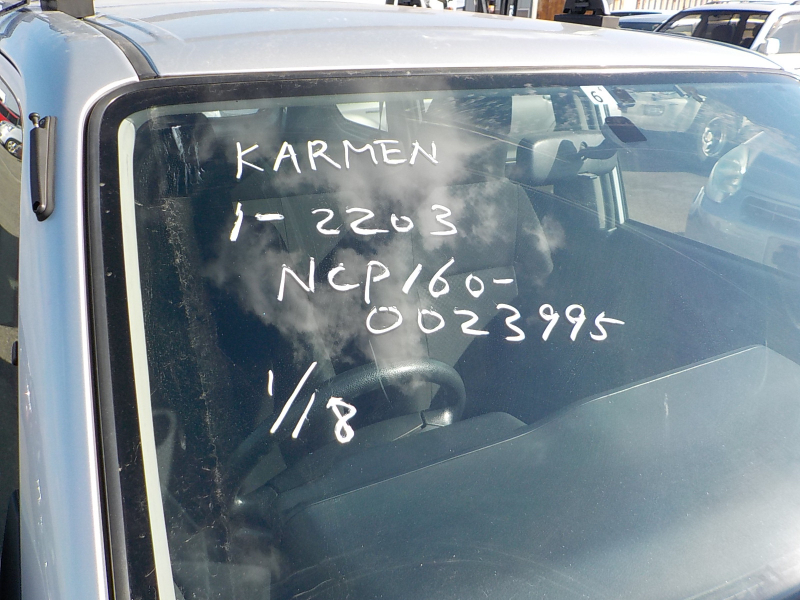 6
KARMEN
1-2203
NCP160-
0023995
1/18